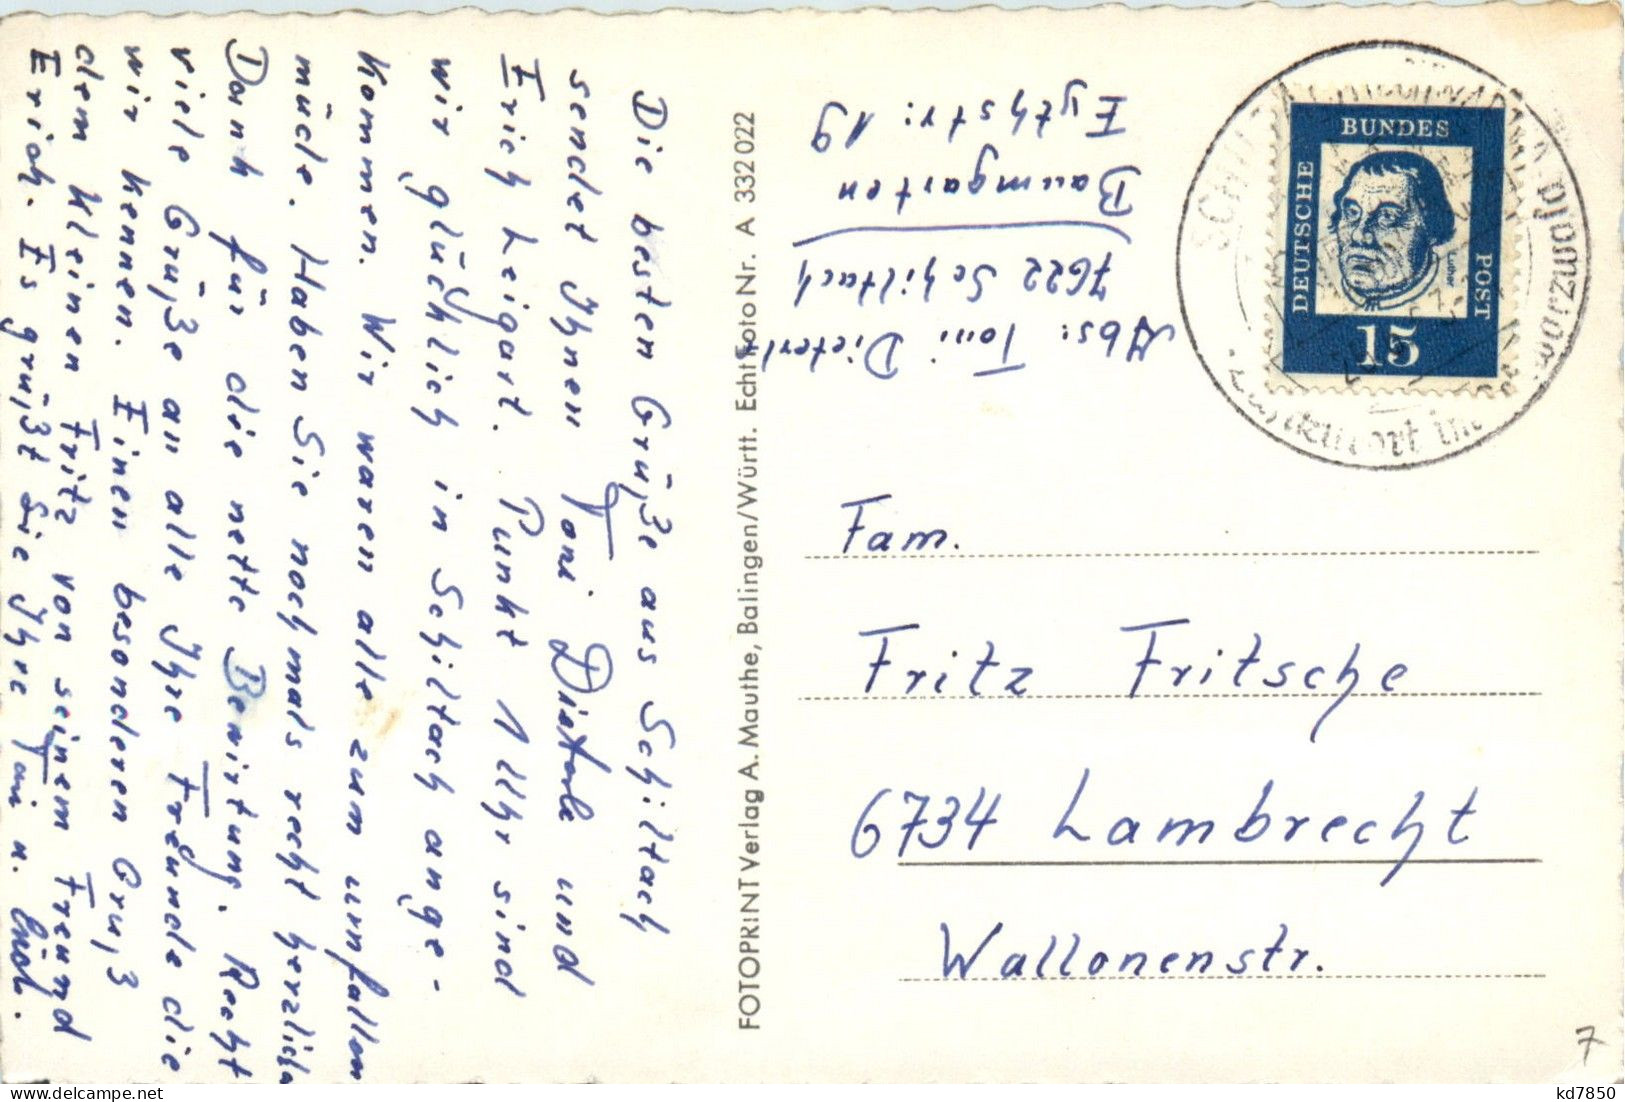 Die besten Grüße aus Schiltach
sendet Ihnen Toni Dieterle und
Erich Leigart. Punkt 1 Uhr sind
wir glücklich in Schiltach ange-
kommen. Wir waren alle zum umfallen
müde. Haben Sie nochmals recht herzlich
Dank für die nette Bewirtung. Recht
viele Grüße an alle Ihre Freunde die
wir kennen. Einen besonderen Gruß
dem kleinen Fritz von seinem Freund
Erich. Es grüßt Sie Ihre Toni u. Erich.
FOTOPRINT Verlag A. Mauthe, Balingen/Württ. Echt Foto Nr. A 332 022
Abs: Toni Dieterle
7622 Schiltach
Baumgarten
Eythstr: 19
DEUTSCHE
BUNDES
POST
Luther
15
Fam.
Fritz Fritsche
6734 Lambrecht
Wallonenstr.
7
kd7850